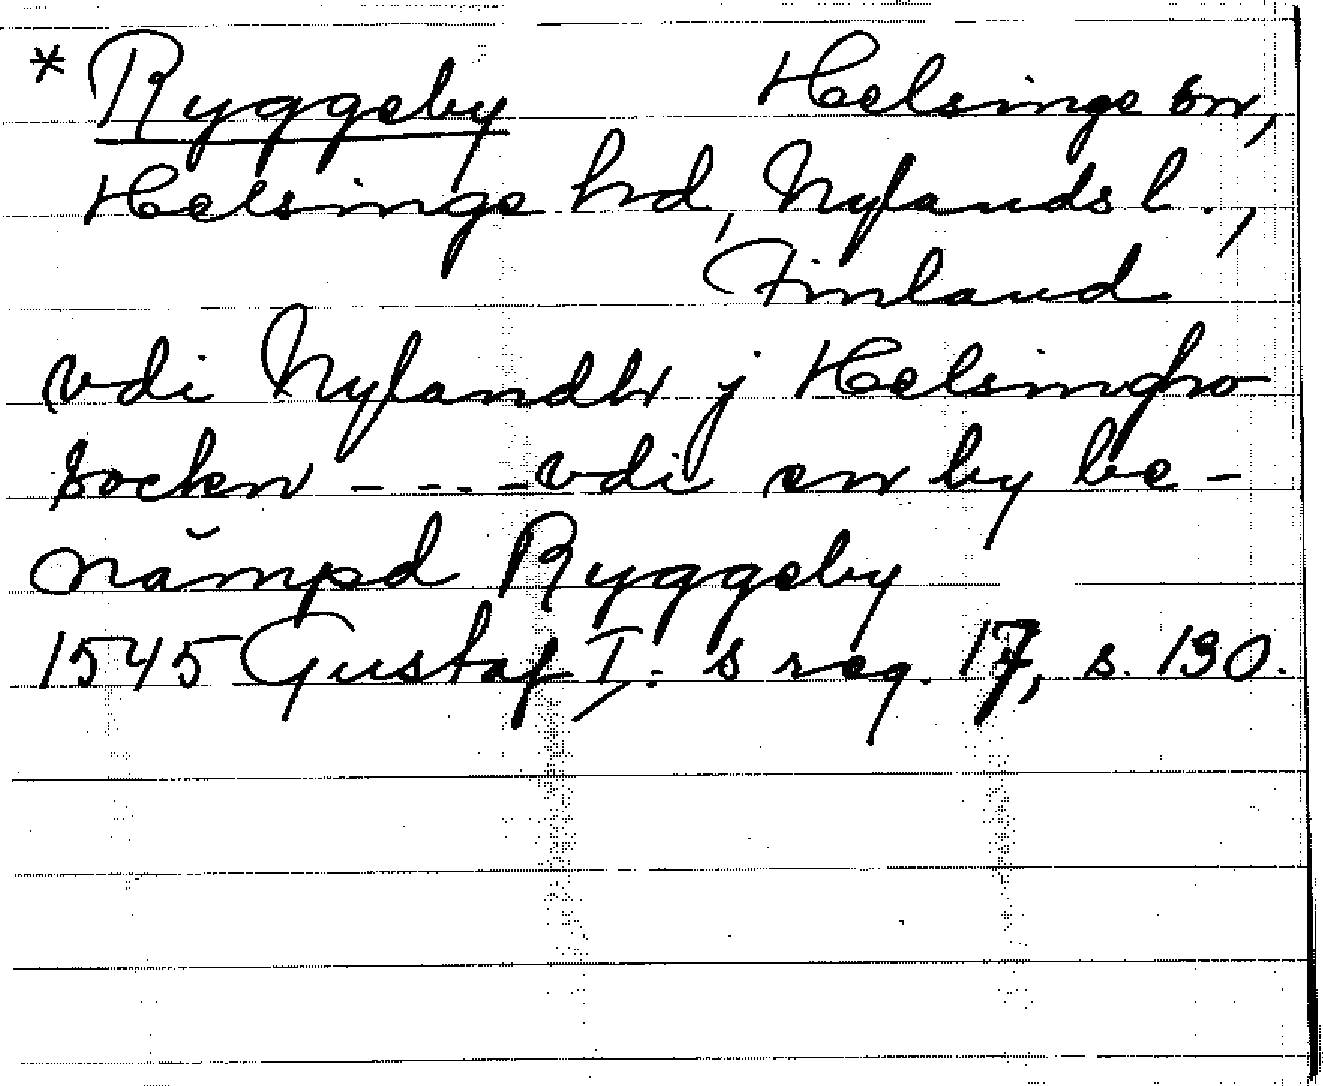 * Ryggeby Helsinge sn,
Helsinge hd, Nylands l.,
Finland
vdi Nylandh j Helsingho
Sockn - - - - vdi en by be-
nåmpd Ryggeby
1545 Gustaf I: s reg. 17, s. 130.